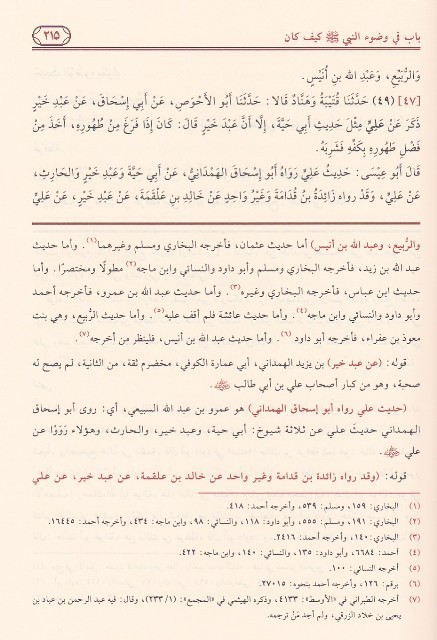 باب في وضوء النبي ﷺ كيف كان
٢١٥
وَالرُّبَيِّعِ، وَعَبْدِ الله بنِ أُنَيْسٍ.
[٤٧] (٤٩) حَدَّثَنَا قُتَيْبَةُ وَهَنَّادٌ قَالا: حَدَّثَنَا أَبُو الأَحْوَصِ، عَنْ أَبِي إِسْحَاقَ، عَنْ عَبْدِ خَيْرٍ
ذَكَرَ عَنْ عَلِيٍّ مِثْلَ حَدِيثِ أَبِي حَيَّةَ، إِلَّا أَنَّ عَبْدَ خَيْرٍ قَالَ: كَانَ إِذَا فَرَغَ مِنْ طُهُورِهِ، أَخَذَ مِنْ
فَضْلِ طَهُورِهِ بِكَفِّهِ فَشَرِبَهُ.
قَالَ أَبُو عِيْسَى: حَدِيثُ عَلِيٍّ رَوَاهُ أَبُو إِسْحَاقَ الهَمْدَانِيُّ، عَنْ أَبِي حَيَّةَ وَعَبْدِ خَيْرٍ وَالحَارِثِ،
عَنْ عَلِيٍّ، وَقَدْ رواه زَائِدَةُ بنُ قُدَامَةَ وَغَيْرُ وَاحِدٍ عَنْ خَالِدِ بنِ عَلْقَمَةَ، عَنْ عَبْدِ خَيْرٍ، عَنْ عَلِيٍّ
والرُّبيع، وعبد الله بن أنيس) أما حديث عثمان، فأخرجه البخاري ومسلم وغيرهما(١). وأما حديث
عبد الله بن زيد، فأخرجه البخاري ومسلم وأبو داود والنسائي وابن ماجه(٢) مطولًا ومختصرًا. وأما
حديث ابن عباس، فأخرجه البخاري وغيره(٣). وأما حديث عبد الله بن عمرو، فأخرجه أحمد
وأبو داود والنسائي وابن ماجه(٤). وأما حديث عائشة فلم أقف عليه(٥). وأما حديث الرُّبيع، وهي بنت
معوذ بن عفراء، فأخرجه أبو داود(٦). وأما حديث عبد الله بن أنيس، فلينظر من أخرجه(٧).
قوله: (عن عبد خير) بن يزيد الهمداني، أبي عمارة الكوفي، مخضرم ثقة، من الثانية، لم يصح له
صحبة، وهو من كبار أصحاب علي بن أبي طالب ﷺ.
(حديث علي رواه أبو إسحاق الهمداني) هو عمرو بن عبد الله السبيعي، أي: روى أبو إسحاق
الهمداني حديث علي عن ثلاثة شيوخ: أبي حية، وعبد خير، والحارث، وهؤلاء رَوَوْا عن
علي.
قوله: (وقد رواه زائدة بن قدامة وغير واحد عن خالد بن علقمة، عن عبد خير، عن علي
(١) البخاري: ١٥٩، ومسلم: ٥٣٩، وأخرجه أحمد: ٤١٨.
(٢) البخاري: ١٩١، ومسلم: ٥٥٥، وأبو داود: ١١٨، والنسائي: ٩٨، وابن ماجه: ٤٣٤، وأخرجه أحمد: ١٦٤٤٥.
(٣) البخاري: ١٤٠، وأخرجه أحمد: ٢٤١٦.
(٤) أحمد: ٦٦٨٤، وأبو داود: ١٣٥، والنسائي: ١٤٠، وابن ماجه: ٤٢٢.
(٥) أخرجه النسائي: ١٠٠.
(٦) برقم: ١٢٦، وأخرجه أحمد بنحوه: ٢٧٠١٥.
(٧) أخرجه الطبراني في «الأوسط»: ٤١٣٣، وذكره الهيثمي في «المجمع»: (١/ ٢٣٣)، وقال: فيه عبد الرحمن بن عباد بن
يحيى بن خلاد الزرقي، ولم أجد مَنْ ترجمه.